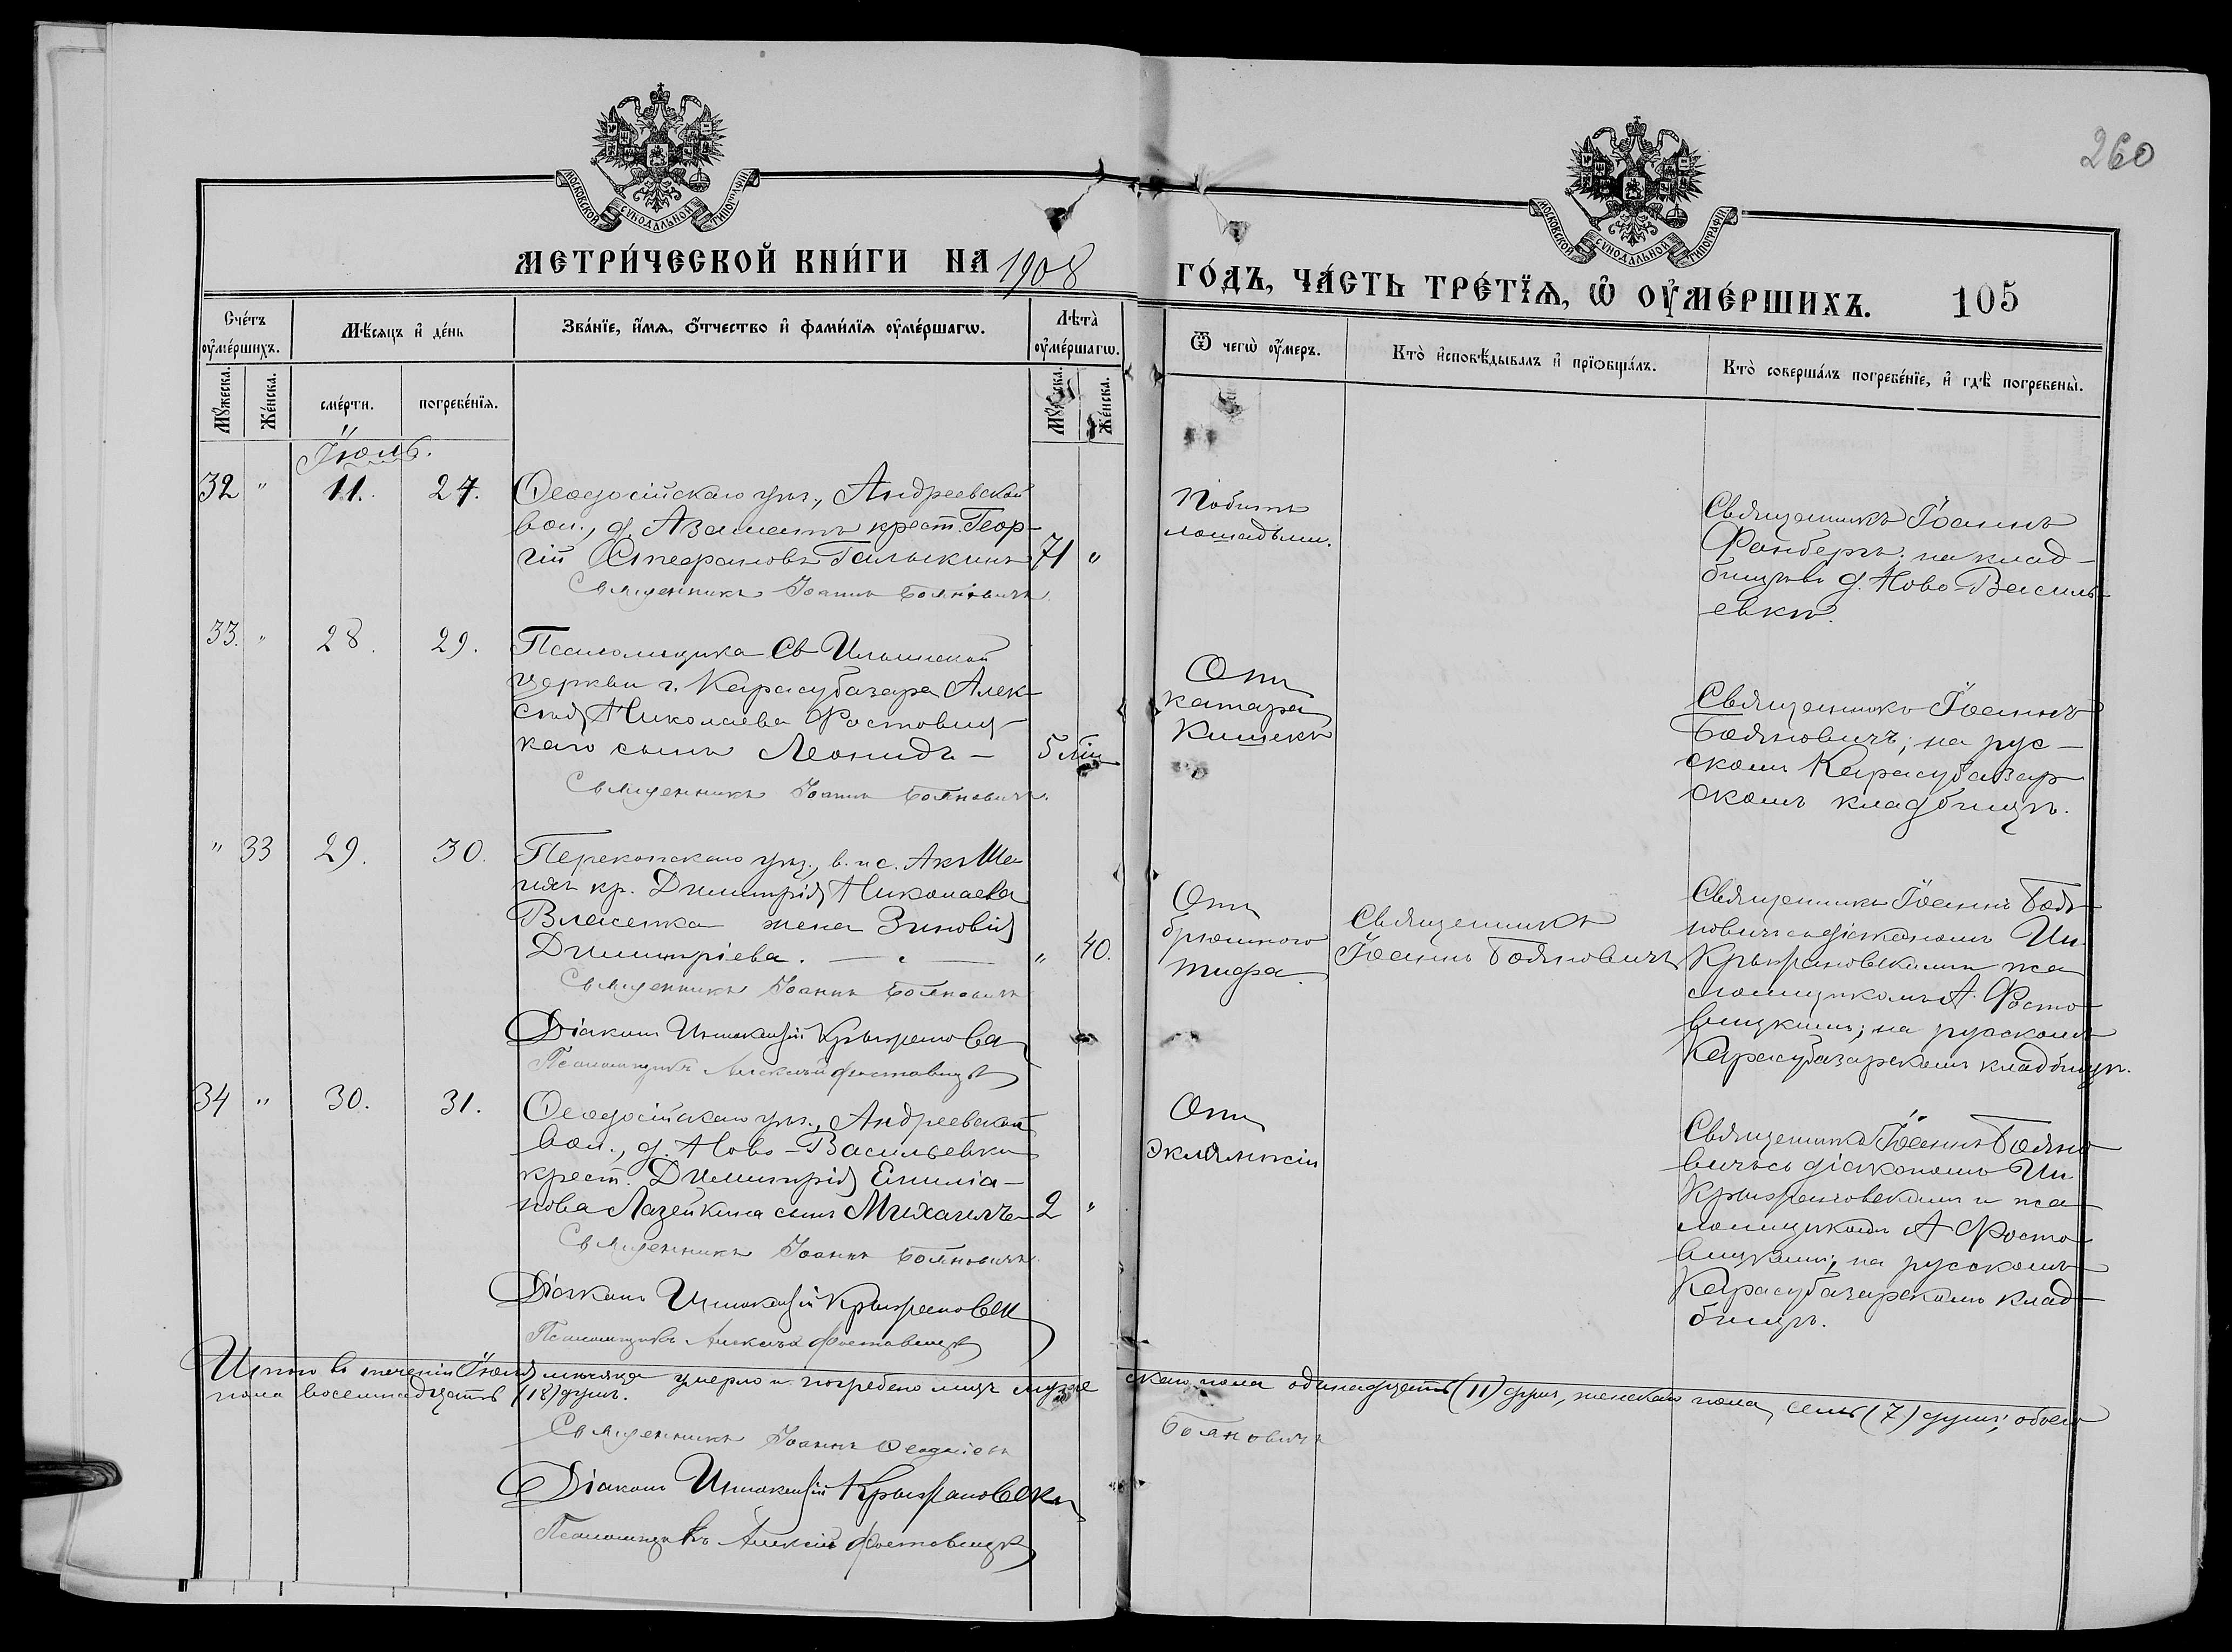 260
МОСКОВСКОЙ СѴНОДАЛЬНОЙ ТИПОГРАФІИ
МОСКОВСКОЙ СѴНОДАЛЬНОЙ ТИПОГРАФІИ
МЕТРИ́ЧЕСКОЙ КНИ́ГИ НА 1908
ГО́ДЪ, ЧА́СТЬ ТРЕ́ТЇѦ, Ѡ҆ ОУ҆МЕ́РШИХЪ. 105
Сче́тъ оу҆ме́ршихъ.
Мѣ́сяцъ и҆ де́нь
Зва́нїе, и҆́мѧ, ѻ҆́тчество и҆ фами́лїѧ оу҆ме́ршагѡ.
Лѣта̀ оу҆ме́ршагѡ.
Ѿ чегѡ̀ оу҆́меръ.
Кто̀ и҆сповѣ́дывалъ и҆ прїѡбща́лъ.
Кто̀ соверша́лъ погребе́нїе, и҆ гдѣ̀ погребены̀.
Мꙋ́жеска.
Же́нска.
сме́рти.
погребе́нїѧ.
Мꙋ́жеска.
Же́нска.
Іюль.
32 " 11. 27.
Ѳеодосійскаго уѣз., Андреевской
вол., д. Азаматъ крест. Геор-
гій Стефановъ Галыкинъ 71 "
Священникъ Іоаннъ Бояновичъ
Побитъ
лошадьми.
Священникъ Іоаннъ
Фанберъ; на клад-
бищѣ д. Ново-Василь-
евки.
33. " 28. 29.
Псаломщика Св Ильинской
церкви г. Карасубазара Алек-
сѣя Николаева Фостовиц-
каго сынъ Леонидъ – 5 мѣс
Священникъ Іоаннъ Бояновичъ.
Отъ
катара
Кишекъ
Священникъ Іоаннъ
Бояновичъ; на рус-
скомъ Карасубазар
скомъ кладбищѣ.
" 33 29. 30.
Перекопскаго уѣз., в. и с. Акъ Ше-
ихъ кр. Димитрія Николаева
Власенка жена Зиновія
Димитріева. " 40.
Священникъ Іоаннъ Бояновичъ
Діаконъ Иннокентій Крыжановск
Псаломщикъ Алексѣй Фостовицк
Отъ
брюшного
тифа.
Священникъ
Іоаннъ Бояновичъ
Священникъ Іоаннъ Боя-
новичъ съ діакономъ Ин.
Крыжановскимъ и пса
ломщикомъ А. Фосто-
вицкимъ; на русскомъ
Карасубазарскомъ кладбищѣ.
34 " 30. 31.
Ѳеодосійскаго уѣз., Андреевской
вол., д. Ново-Васильевки
крест. Димитрія Емиліа-
нова Лазейкина сынъ Михаилъ 2 "
Священникъ Іоаннъ Бояновичъ.
Діаконъ Иннокентій Крыжановск
Псаломщикъ Алексѣй Фостовицк
Отъ
эклямпсіи
Священникъ Іоаннъ Бояно
вичъ съ діакономъ Ин
Крыжановскимъ и пса-
ломщикомъ А Фосто-
вицкимъ; на русскомъ
Карасубазарскомъ клад-
бищѣ.
Итого въ теченіи Іюля мѣсяца умерло и погребено лицъ муже скаго пола одинадцать (11) душъ, женскаго пола семь (7) душъ; обоего
пола восемнадцать (18) душъ.
Священникъ Іоаннъ Бояновичъ
Діаконъ Иннокентій Крыжановск
Псаломщикъ Алексѣй Фостовицк